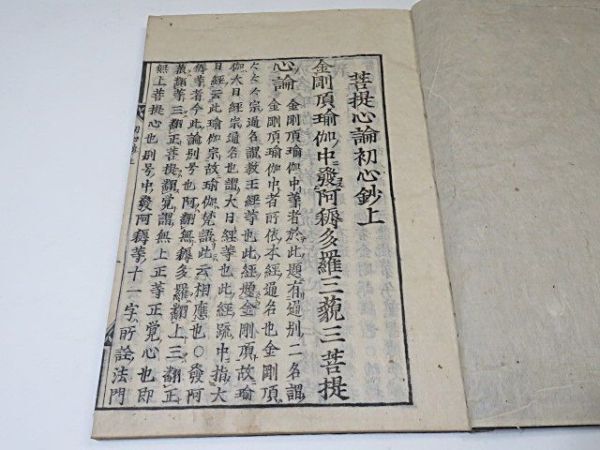 菩提心論初心鈔上
金剛頂瑜伽中發阿耨多羅三藐三菩提
心論 金剛頂瑜伽中等者於此題有通別二名謂
金剛頂瑜伽中者所依本經通名也金剛頂
者今宗通名謂教王經等也此經題金剛頂故瑜
伽大日經宗通名也謂大日經等也此經疏中指大
日經云此瑜伽宗故瑜伽梵語此云相應也〇發阿
耨等者今此論別号也阿翻無耨多羅翻上三翻正
藐翻等三翻正菩提翻覺謂無上正等正覺心也即
無上菩提心也別号中發阿耨等十一字所詮法門